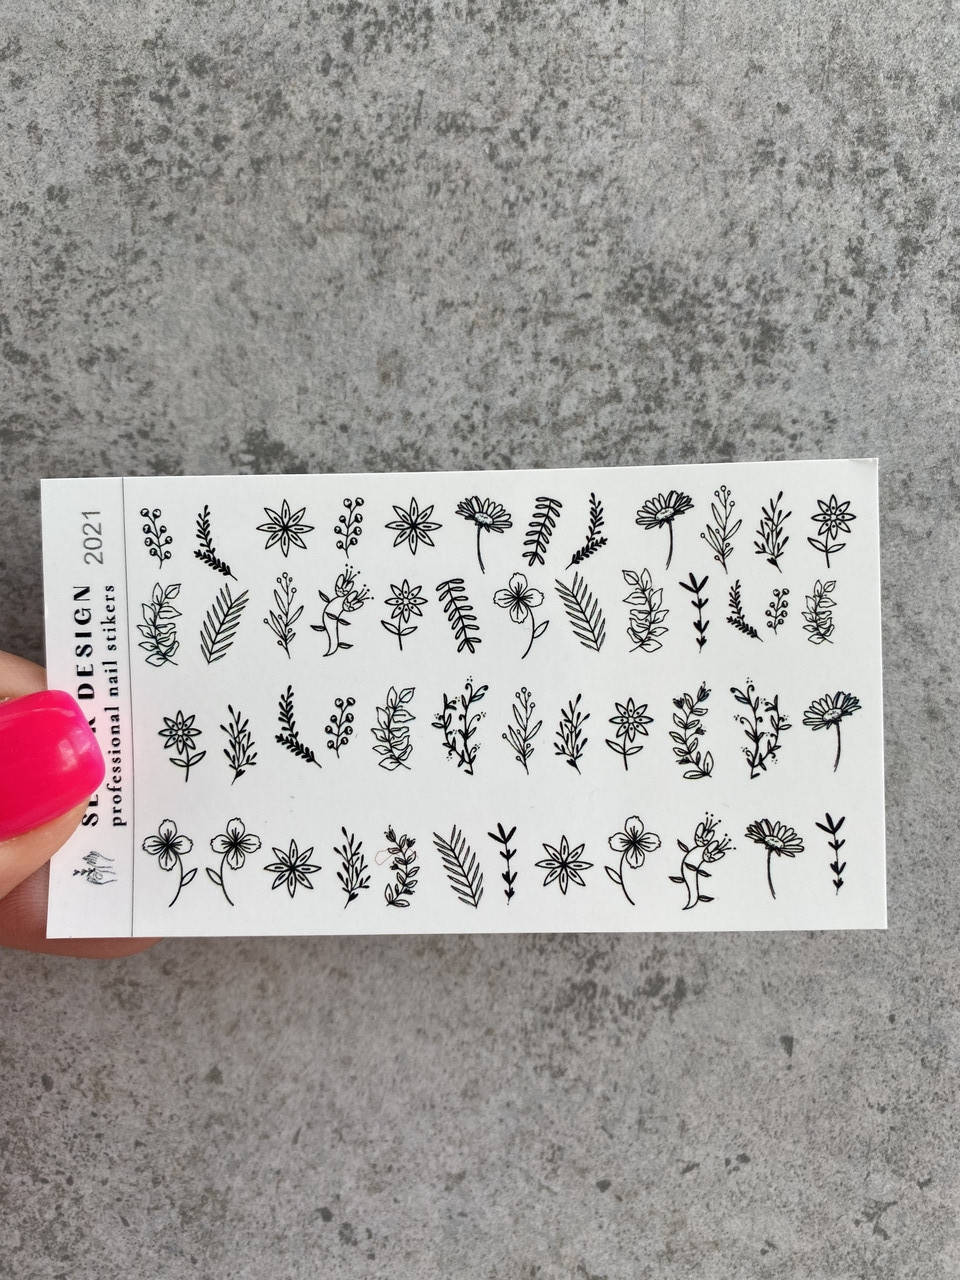 DESIGN
professional nail stikers
2021